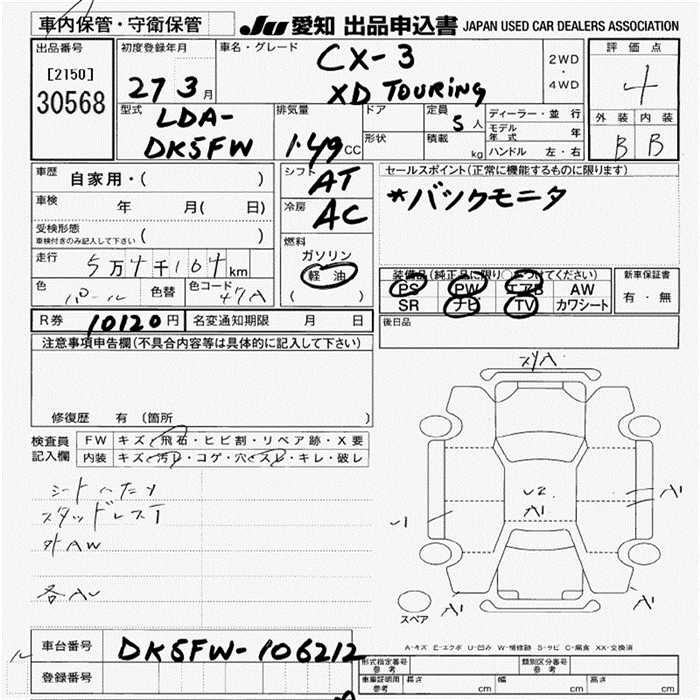 車内保管・守衛保管 JU 愛知 出品申込書 JAPAN USED CAR DEALERS ASSOCIATION
出品番号 初度登録年月 車名・グレード 評価点
[2150] CX-3 2WD
30568 27 3月 XD TOURING ・ 4
4WD
型式 排気量 ドア 定員 ディーラー・並 行 外装 内装
LDA- 5人 モデル年式 年
DK5FW 1.49CC 形状 積載 kg ハンドル 左・右 B B
車歴 自家用・( ) シフト AT セールスポイント(正常に機能するものに限ります)
車検 年 月( 日) 冷房 AC *バックモニタ
受検形態 ( )
車検付きのみ記入して下さい
燃料
走行 5万4千164km ガソリン
軽 油
( )
装備品(純正品に限り○をつけてください) 新車保証書
色 パール 色替 色コード 47A PS PW エアB AW 有・無
SR ナビ TV カワシート
R券 10120円 名変通知期限 月 日 後日品
注意事項申告欄(不具合内容等は具体的に記入して下さい)
修復歴 有(箇所 )
検査員 FW キズ・飛石・ヒビ割・リペア跡・X要
記入欄 内装 キズ・汚レ・コゲ・穴・スレ・キレ・破レ
シートヘタリ
スタッドレスT
外AW
A1
A1
A1 A1
スペア
A-キズ E-エクボ U-凹み W-補修跡 S-サビ C-腐食 XX-交換済
車台番号 DK5FW-106212
登録番号
形式指定番号 参考 類別区分番号 参考
車庫証明用 参考 長さ cm 幅 cm 高さ cm